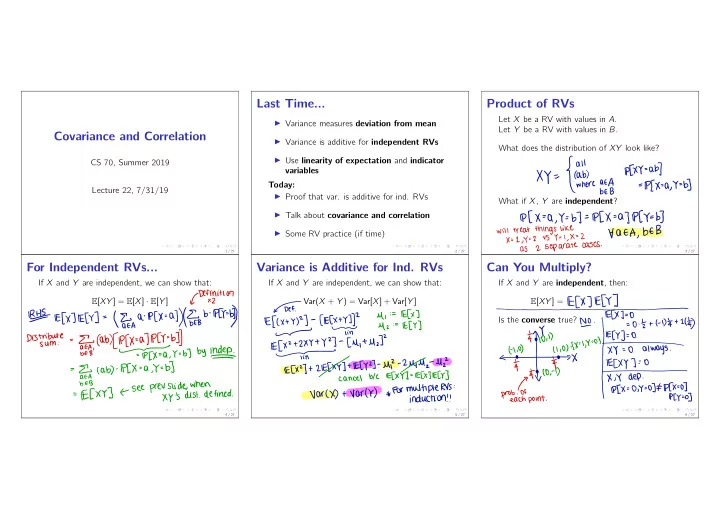 Covariance and Correlation
CS 70, Summer 2019
Lecture 22, 7/31/19
1 / 27
Last Time...
Variance measures deviation from mean
Variance is additive for independent RVs
Use linearity of expectation and indicator
variables
Today:
Proof that var. is additive for ind. RVs
Talk about covariance and correlation
Some RV practice (if time)
2 / 27
Product of RVs
Let X be a RV with values in A.
Let Y be a RV with values in B.
What does the distribution of XY look like?
XY = { all (ab) where a∈A b∈B
P[XY=ab]
= P[X=a, Y=b]
What if X, Y are independent?
P[X=a, Y=b] = P[X=a] P[Y=b]
∀a∈A, b∈B
will treat things like
X=1, Y=2 vs Y=1, X=2
as 2 separate cases.
3 / 27
For Independent RVs...
If X and Y are independent, we can show that:
E[XY] = E[X] · E[Y]
Definition x2
RHS E[X]E[Y] = (Σ a∈A a·P[X=a])(Σ b∈B b·P[Y=b])
Distribute sum. = Σ a∈A, b∈B (ab)[P[X=a]P[Y=b]]
= P[X=a, Y=b] by indep.
= Σ a∈A b∈B (ab)·P[X=a, Y=b]
= E[XY] ← see prev slide, when
XY's dist. defined.
4 / 27
Variance is Additive for Ind. RVs
If X and Y are independent, we can show that:
Var(X + Y) = Var[X] + Var[Y]
Def
E[(X+Y)²] - [E[X+Y]]²
μ₁ := E[X]
μ₂ := E[Y]
lin
E[X²+2XY+Y²] - [μ₁+μ₂]²
lin
E[X²] + 2E[XY] + E[Y²] - μ₁² - 2μ₁μ₂ - μ₂²
cancel b/c E[XY] = E[X]E[Y]
Var(X) + Var(Y) * For multiple RVs:
induction!!
5 / 27
Can You Multiply?
If X and Y are independent, then:
E[XY] = E[X]E[Y]
Is the converse true? No.
E[X]=0
= 0·½ + (-1)¼ + 1(¼)
E[Y]=0
XY = 0 always.
E[XY] = 0
X, Y dep.
P[X=0, Y=0] ≠ P[X=0]
P[Y=0]
Y
¼ (0,1)
(-1,0)
(1,0)
X
¼
¼
¼ (0,-1)
prob. of
each point.
6 / 27